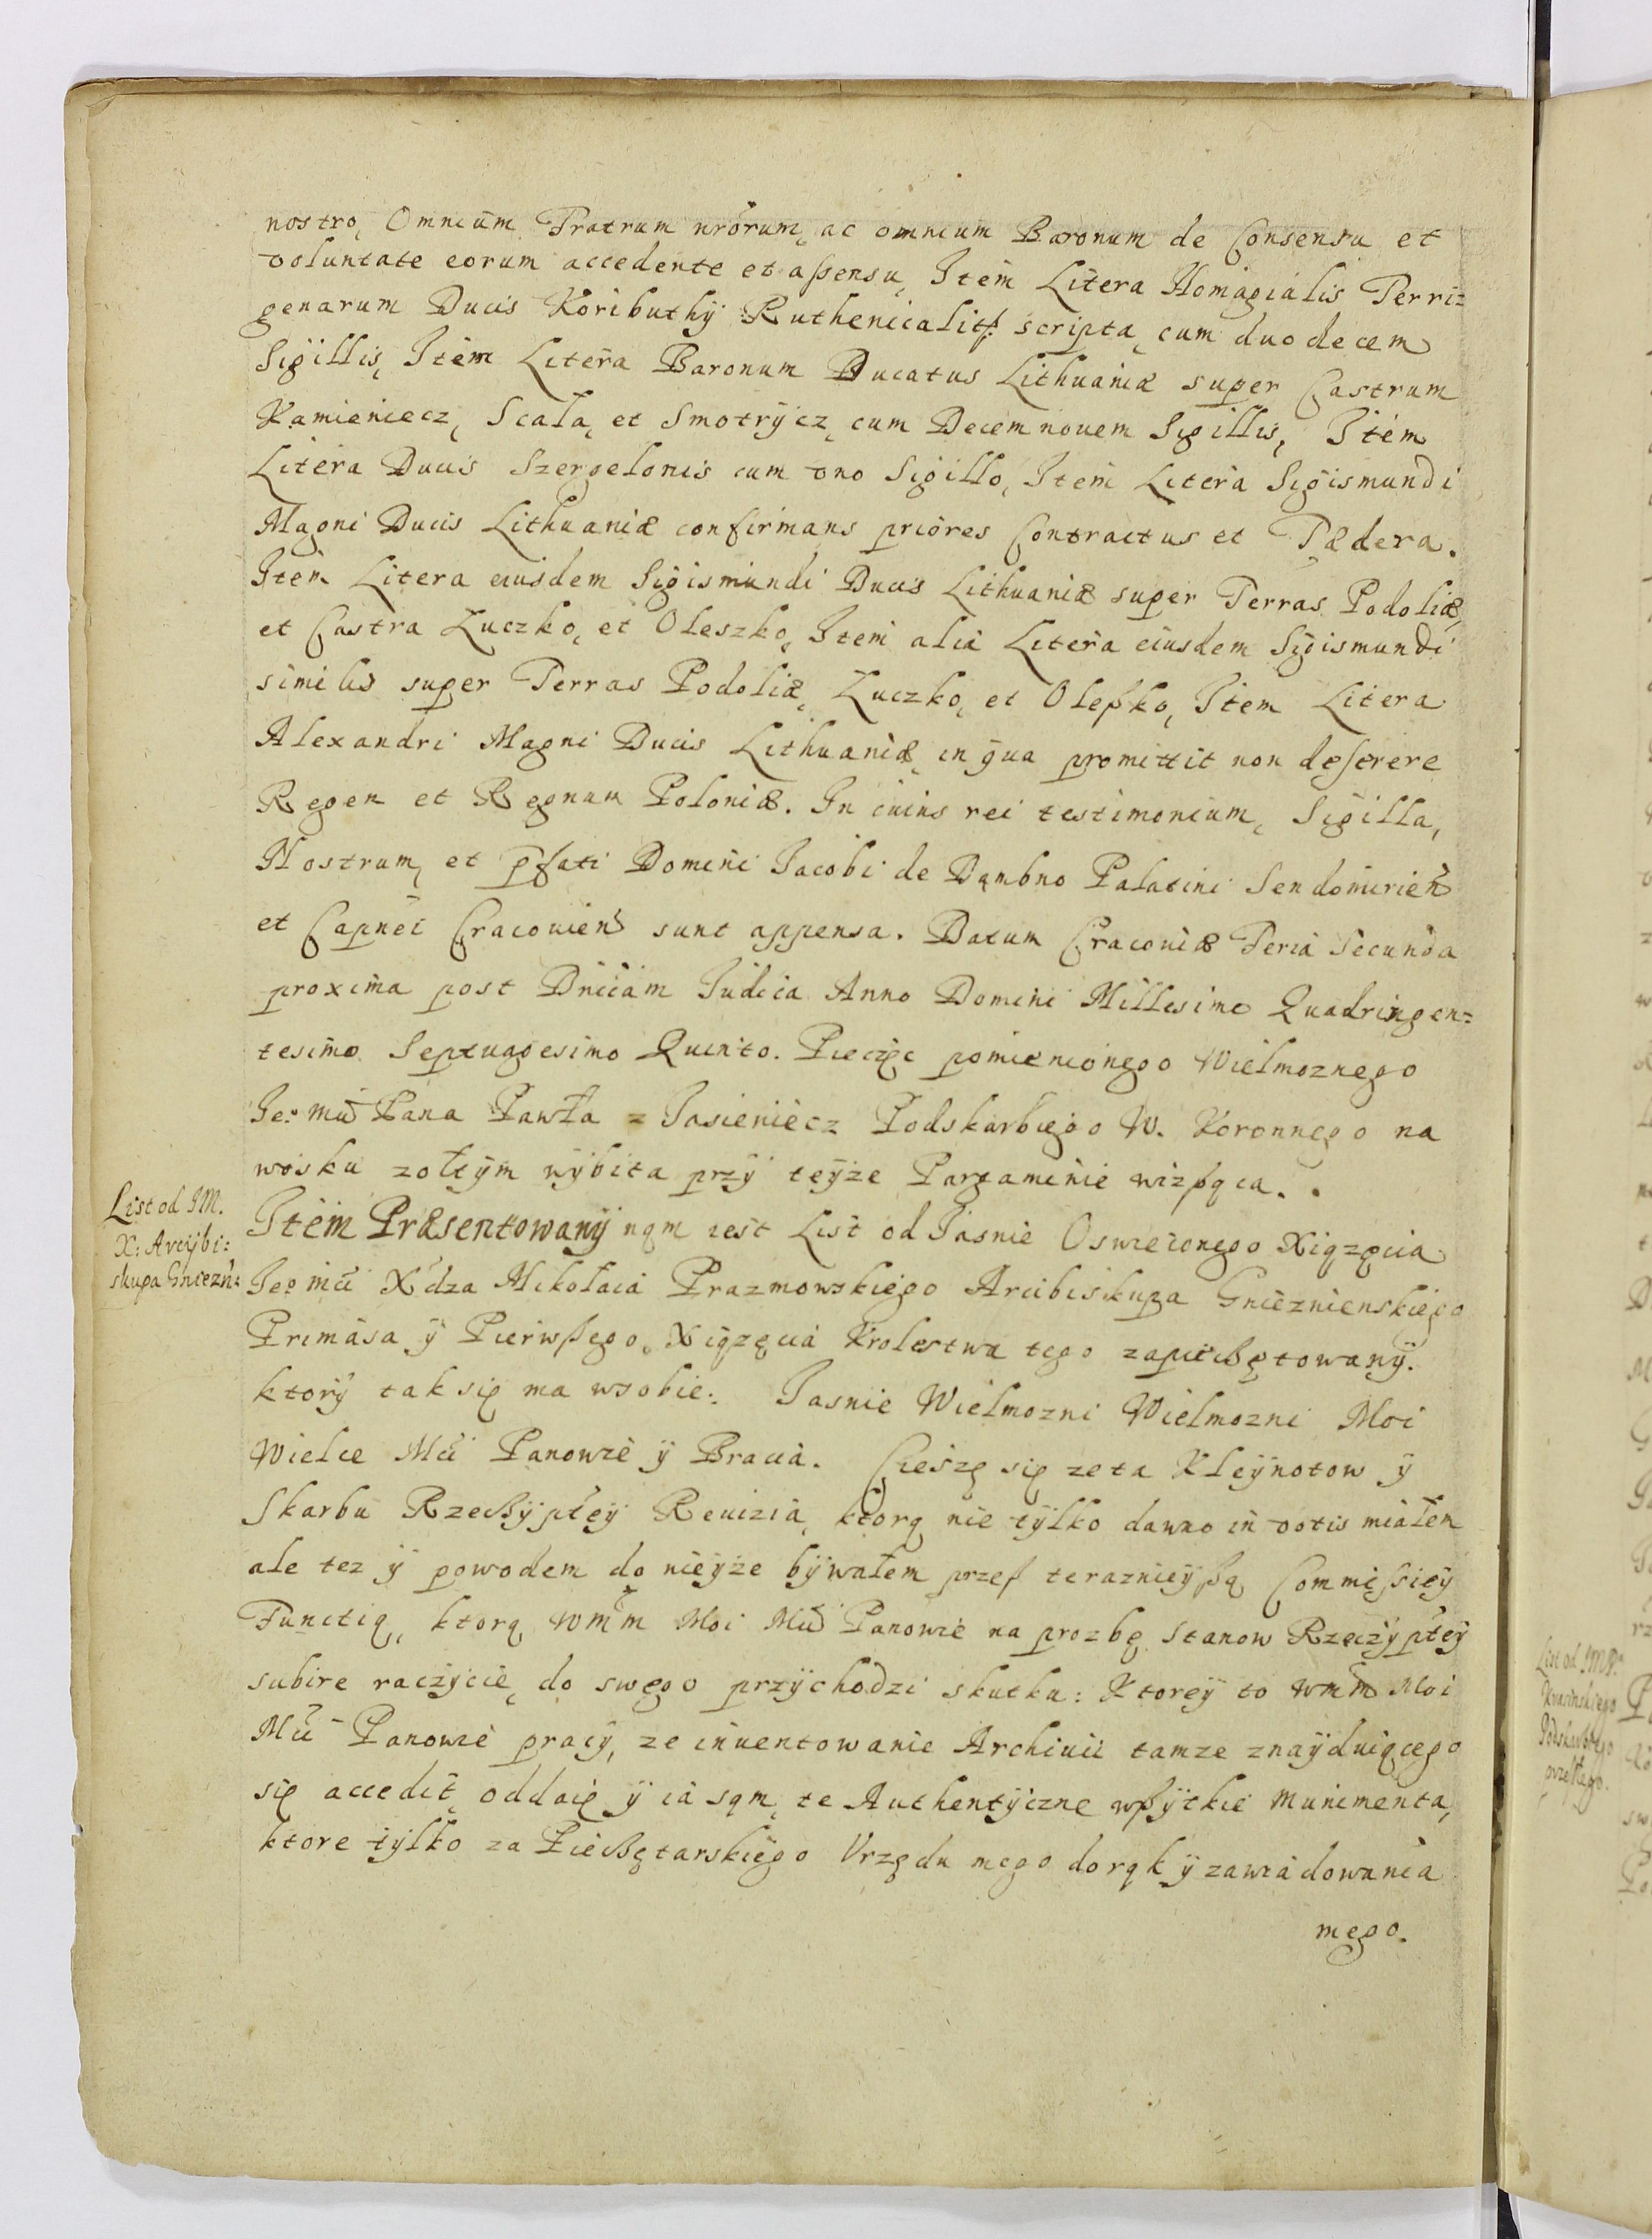 nostro, Omnium Fratrum nrorum, ac omnium Baronum de Consensu et
voluntate eorum accedente et assensu, Item Litera Homagialis Terri=
genarum Ducis Koributhÿ Ruthenicalitr scripta, cum duodecem
Sigillis, Item Litera Baronum Ducatus Lithuaniæ super Castrum
Kamieniecz, Scala, et Smotrÿcz, cum Decem nouem Sigillis, Item
Litera Ducis Szergelonis cum vno Sigillo, Item Litera Sigismundi
Magni Ducis Lithuaniæ confirmans priores Contractus et Fædera.
Item Litera eiusdem Sigismundi Ducis Lithuaniæ super Terras Podoliæ,
et Castra Łuczko, et Oleszko, Item alia Litera eiusdem Sigismundi
similis super Terras Podoliæ, Łuczko, et Oleßko, Item Litera
Alexandri Magni Ducis Lithuaniæ, in qua promittit non deserere
Regem et Regnum Poloniæ. In cuius rei testimonium, Sigilla,
Nostrum, et pfati Domini Jacobi de Dąmbno Palatini Sendomirien
et Capnei Cracouien sunt appensa. Datum Cracouiæ Feria Secunda
proxima post Dnicam Judica Anno Domini Millesimo Quadringen=
tesimo Septuagesimo Quinto. Pieczęc pomienionego Wielmoznego
Je° mci Pana Pawła z Jasieniecz Podskarbiego W. Koronnego na
wosku zołtÿm wÿbita przÿ teÿże Pargaminie wißąca.
List od JM.
X: Arcÿbi:
skupa Gniezn:
Item Præsentowanÿ nąm iest List od Jasnie Oswieconego Xiązęcia
Je° mci Xdza Mikołaia Prazmowskiego Arcibiskupa Gnieznienskiego
Primasa ÿ Pierwßego, Xiązęcia Krolestwa tego zapieczętowanÿ.
ktorÿ tak się ma wsobie. Jasnie Wielmozni Wielmozni Moi
Wielce Mci Panowie ÿ Bracia. Cieszę się ze ta Kleÿnotow ÿ
Skarbu Rzeczÿptey Reuizia, ktorą nie tÿlko dawno in votis miałem
ale tez ÿ powodem do nieÿże bÿwałem przeß teraznieÿßą Commissieÿ
Functią, ktorą wmm Moi Mci Panowie na prozbę Stanow Rzeczÿpteÿ
subire raczÿcie, do swego przÿchodzi skutku: Ktoreÿ to wmm Moi
Mci Panowie pracÿ, ze inuentowanie Archiuii tamze znaÿduiącego
się accedit, oddaię ÿ ia sąm, te Authentÿczne wßÿtkie munimenta,
ktore tÿlko za Pieczętarskiego Vrzędu mego dorąk ÿ zawiadowania
mego.
List od JMP.
Krasinskiego
Podskarbiego
przeßłego.